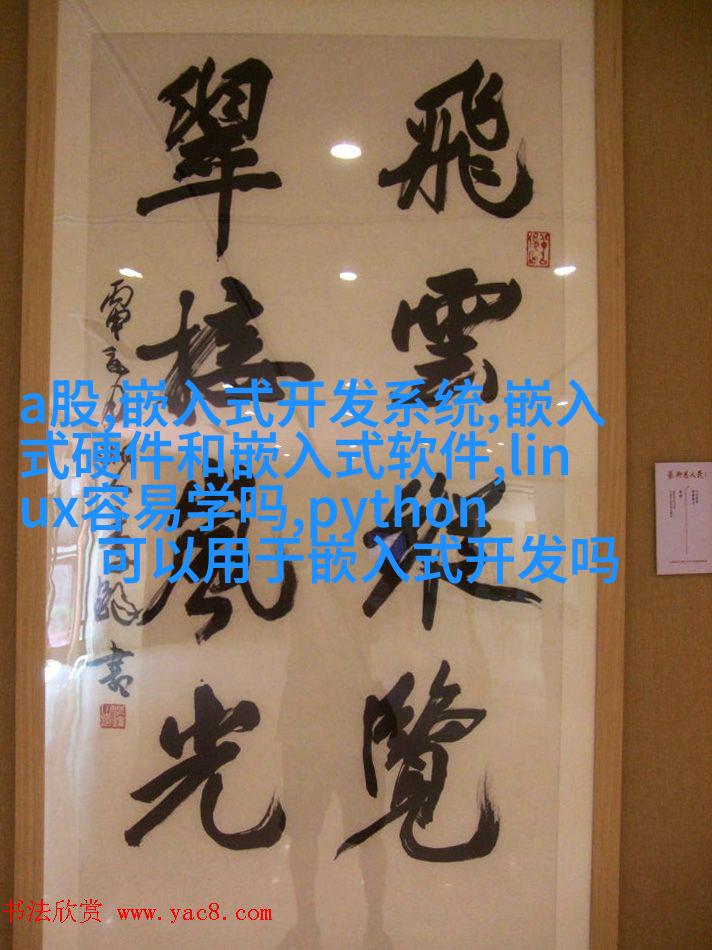 飛雲縱覽
翠挹嵐光
a股,嵌入式开发系统,嵌入
式硬件和嵌入式软件,lin
ux容易学吗,python
可以用于嵌入式开发吗
书法欣赏 www.yac8.com